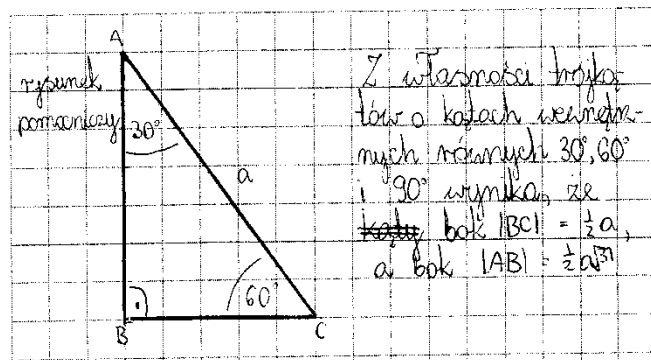 A
rysunek
pomocniczy
30°
a
60°
B
C
Z własności trójką-
tów o kątach wewnętrz-
nych równych 30°, 60°
i 90° wynika, że
kąty bok |BC| = ½a,
a bok |AB| = ½a√3